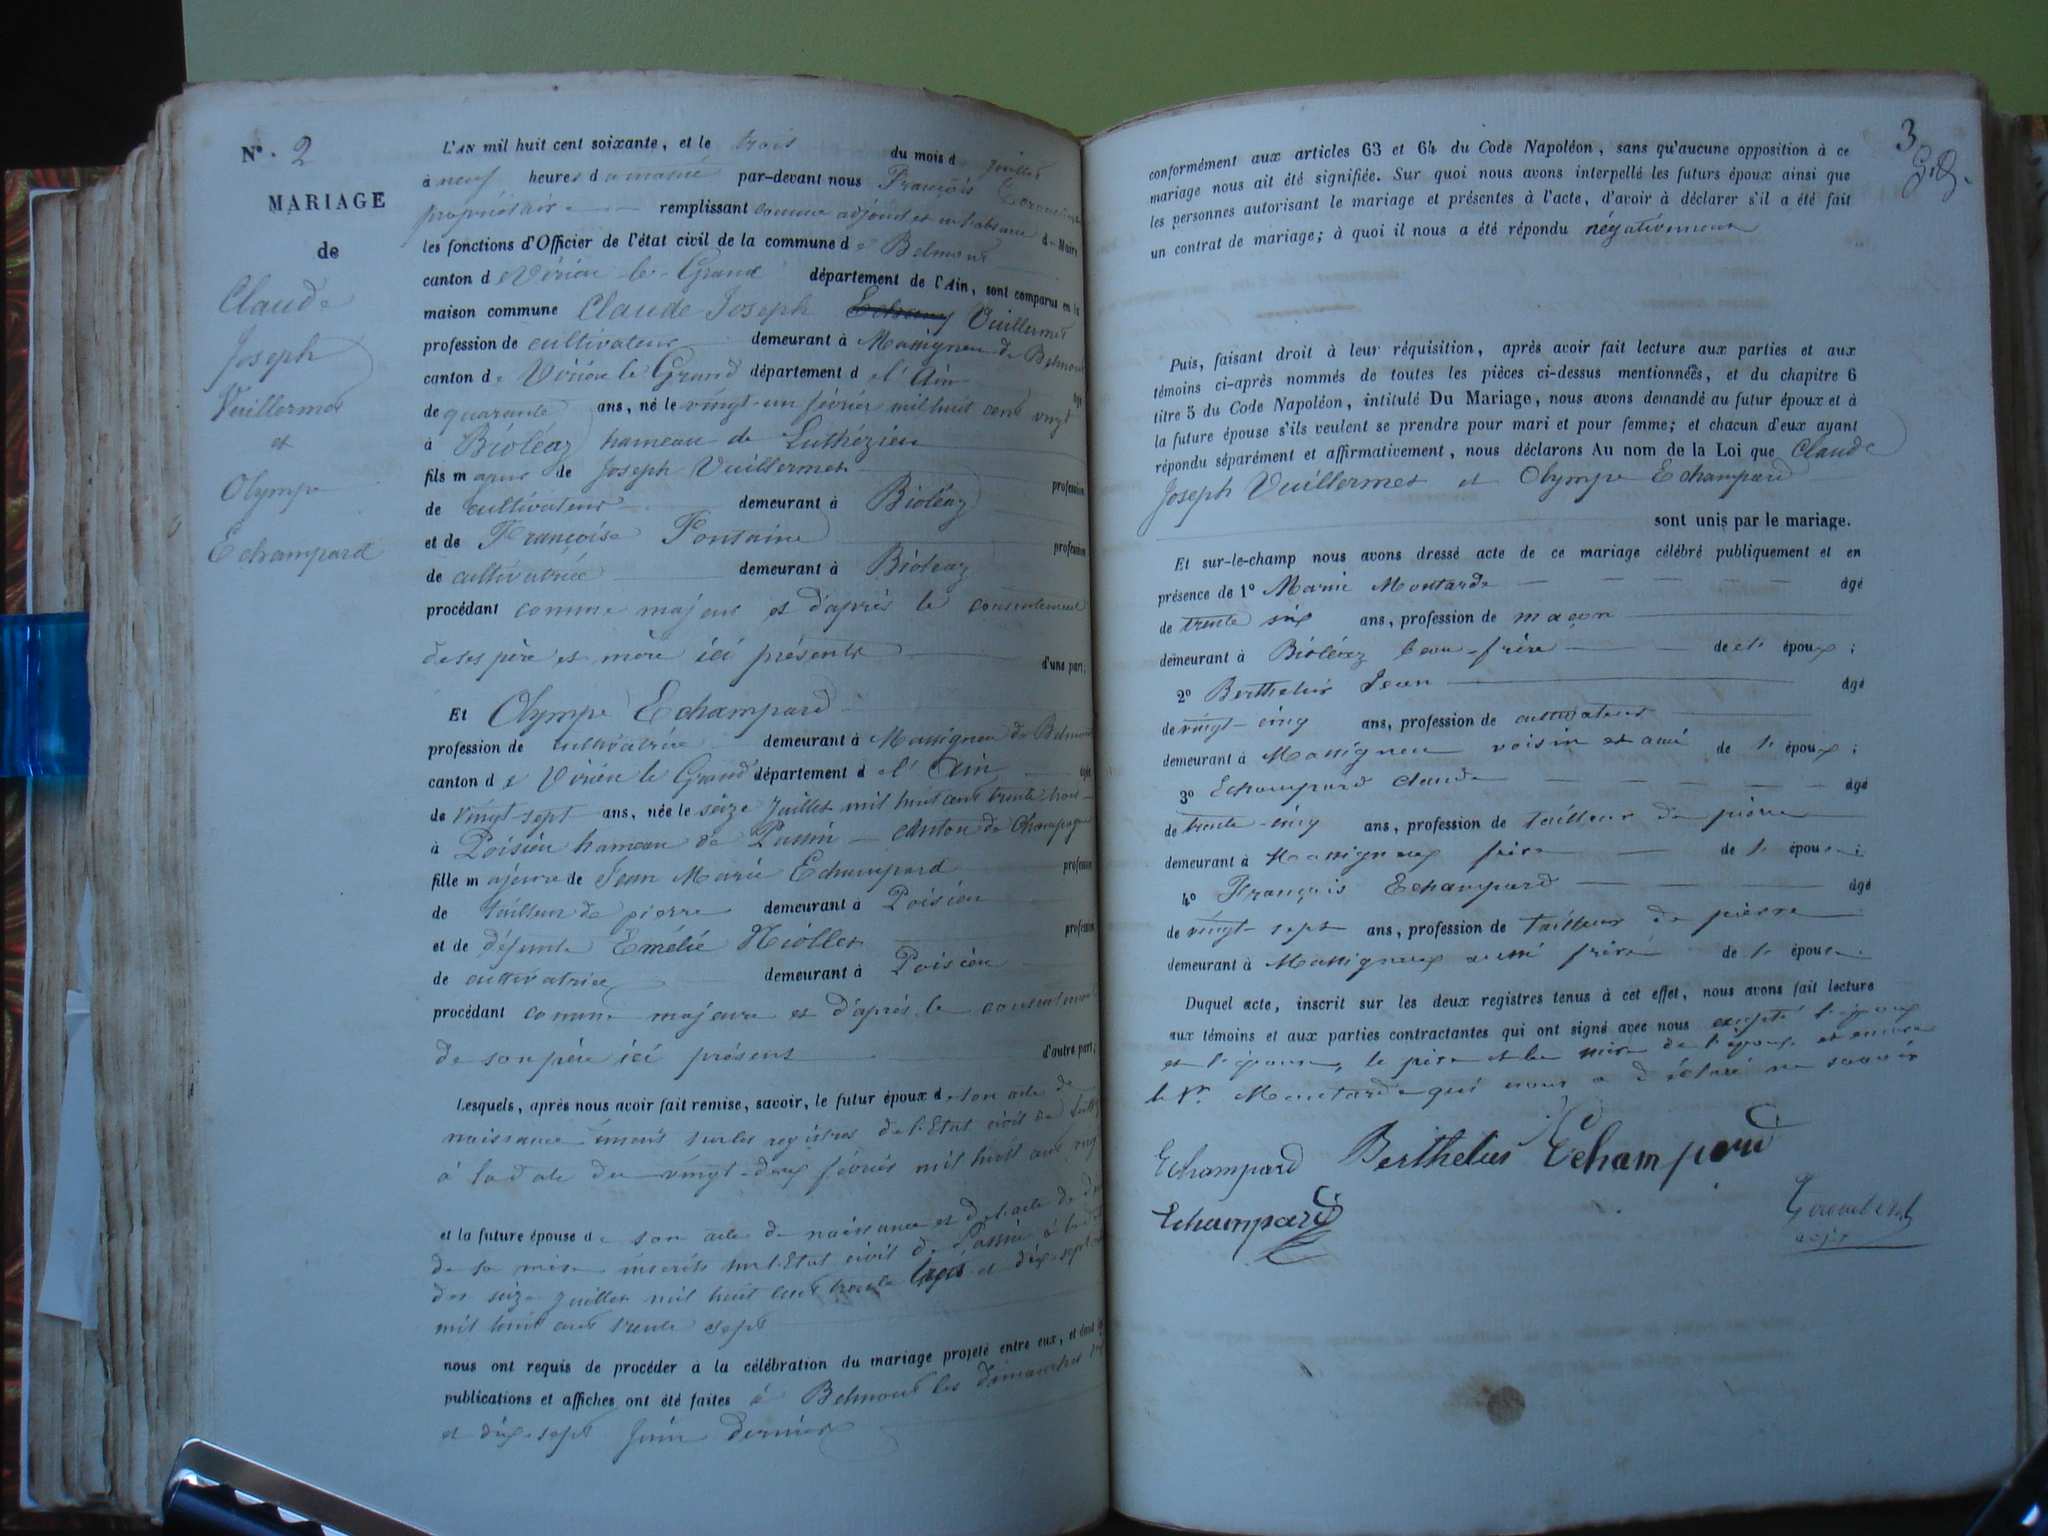 N.º 2
MARIAGE
de
Claude
Joseph
Vuillermet
et
Olympe
Echampard
L'AN mil huit cent soixante, et le trois du mois de juillet
à neuf heures du matin par-devant nous François
propriétaire remplissant comme adjoint et en l'absence du Maire
les fonctions d'Officier de l'état civil de la commune de Belmont
canton de Virieu le Grand département de l'Ain, sont comparus en la
maison commune Claude Joseph Vuillermet
profession de cultivateur demeurant à Massigneu de Belmont
canton de Virieu le Grand département de l'Ain âgé
de quarante ans, né le vingt-un février mil huit cent vingt
à Bioléaz hameau de Luthézieu
fils majeur de Joseph Vuillermet profession
de cultivateur demeurant à Bioléaz
et de Françoise Fontaine profession
de cultivatrice demeurant à Bioléaz
procédant comme majeur et d'après le consentement
de ses père et mère ici présents d'une part;
Et Olympe Echampard
profession de cultivatrice demeurant à Massigneu de Belmont
canton de Virieu le Grand département de l'Ain âgée
de vingt-sept ans, née le seize juillet mil huit cent trente trois
à Poisieu hameau de Passin canton de Champagne
fille majeure de Jean Marie Echampard profession
de tailleur de pierre demeurant à Poisieu
et de défunte Emélie Niollet profession
de cultivatrice demeurant à Poisieu
procédant comme majeure et d'après le consentement
de son père ici présent d'autre part;
Lesquels, après nous avoir fait remise, savoir, le futur époux de son acte de
naissance inscrit sur les registres de l'Etat civil de
à la date du vingt-deux février mil huit cent vingt
et la future épouse de son acte de naissance et de l'acte de
de sa mère inscrits sur l'Etat civil de Passin à la date
des seize juillet mil huit cent trente trois et dix-sept
mil huit cent trente sept
nous ont requis de procéder à la célébration du mariage projeté entre eux, et dont les
publications et affiches ont été faites à Belmont les dimanches
et dix-sept juin dernier
3
conformément aux articles 63 et 64 du Code Napoléon, sans qu'aucune opposition à ce
mariage nous ait été signifiée. Sur quoi nous avons interpellé les futurs époux ainsi que
les personnes autorisant le mariage et présentes à l'acte, d'avoir à déclarer s'il a été fait
un contrat de mariage; à quoi il nous a été répondu négativement
Puis, faisant droit à leur réquisition, après avoir fait lecture aux parties et aux
témoins ci-après nommés de toutes les pièces ci-dessus mentionnées, et du chapitre 6
titre 5 du Code Napoléon, intitulé Du Mariage, nous avons demandé au futur époux et à
la future épouse s'ils veulent se prendre pour mari et pour femme; et chacun d'eux ayant
répondu séparément et affirmativement, nous déclarons Au nom de la Loi que Claude
Joseph Vuillermet et Olympe Echampard
sont unis par le mariage.
Et sur-le-champ nous avons dressé acte de ce mariage célébré publiquement et en
présence de 1º Marin Moutarde âgé
de trente six ans, profession de maçon
demeurant à Bioléaz beau-frère de l'époux;
2º Berthelier Jean âgé
de vingt-cinq ans, profession de cultivateur
demeurant à Massigneu voisin et ami de l'époux;
3º Echampard Claude âgé
de trente-cinq ans, profession de tailleur de pierre
demeurant à Massigneux frère de l'épouse;
4º François Echampard âgé
de vingt-sept ans, profession de tailleur de pierre
demeurant à Massigneux aussi frère de l'épouse.
Duquel acte, inscrit sur les deux registres tenus à cet effet, nous avons fait lecture
aux témoins et aux parties contractantes qui ont signé avec nous excepté l'époux
et l'épouse, le père et la mère de l'époux et encore
le Sr. Moutarde qui nous a déclaré ne savoir
Echampard Berthelier Echampard
Echampard
adjt